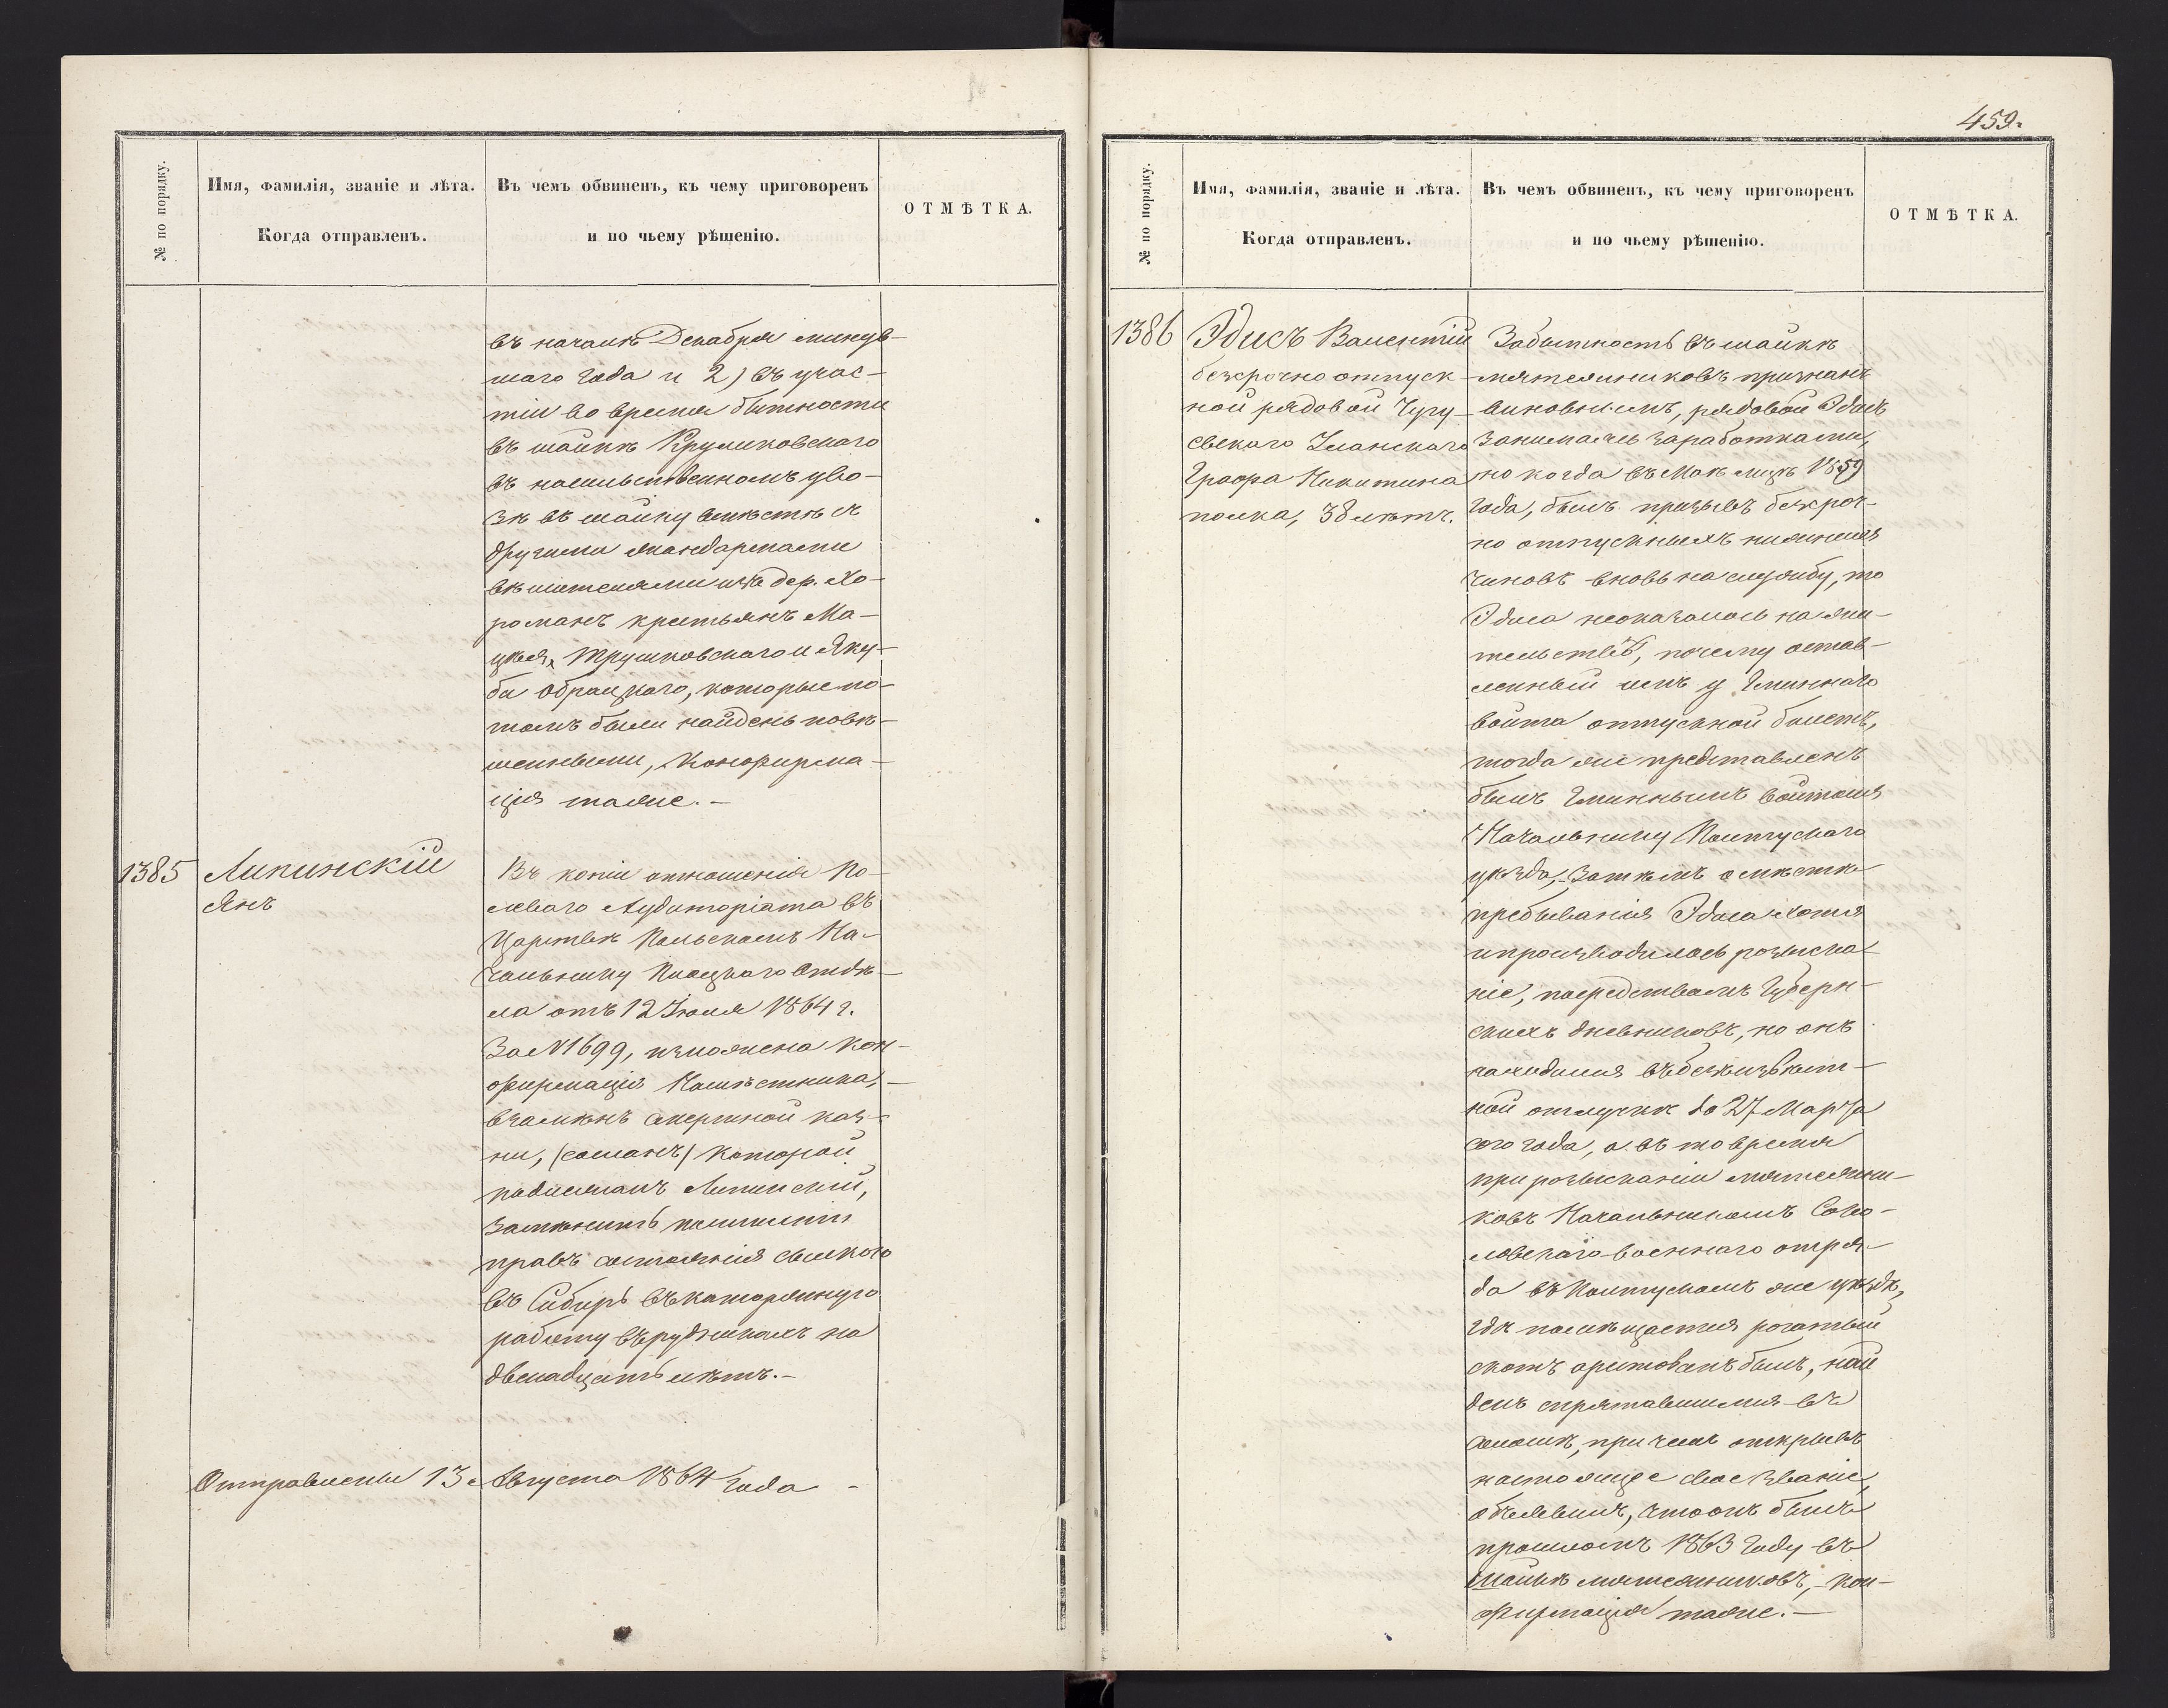 № по порядку.
Имя, фамилія, званіе и лѣта.
Когда отправленъ.
Въ чемъ обвиненъ, къ чему приговоренъ
и по чьему рѣшенію.
ОТМѢТКА.
въ началѣ Декабря минув-
шаго года и 2) въ учас-
тіи во время бытности
въ шайкѣ Крушиковскаго
въ насильственномъ уво-
зѣ въ шайку вмѣстѣ съ
другими жандармами
вѣшателями изъ дер. Хо-
романъ крестьянъ Ма-
цѣя Трушковскаго и Яку-
ба Обрыцкаго, которые по-
томъ были найдены повѣ-
шенными, Конфирма-
ція таже. –
1385
Липинскій
Янъ
Въ копіи отношенія По-
леваго Аудиторіата въ
Царствѣ Польскомъ На-
чальнику Плоцкаго Отдѣ-
ла отъ 12 Іюля 1864 г.
За № 1699, изложена кон-
фирмація Намѣстника, –
взамѣнъ смертной каз-
ни, которой
подлежалъ Липинскій,
правъ состоянія сылкою
въ Сибирь въ каторжную
работу въ рудникахъ на
двенадцать лѣтъ. –
Отправлены 13 Августа 1864 года –
459.
№ по порядку.
Имя, фамилія, званіе и лѣта.
Когда отправленъ.
Въ чемъ обвиненъ, къ чему приговоренъ
и по чьему рѣшенію.
ОТМѢТКА.
1386
Эдисъ Валентій
безсрочно отпуск-
ной рядовой Чугу-
евскаго Уланскаго
Графа Никитина
полка, 38 лѣтъ.
За бытность въ шайкѣ
мятежниковъ признанъ
виновнымъ, рядовой Эдисъ
занимаясь заработками,
но когда въ Маѣ мцѣ 1859
года, былъ призывъ безсроч-
но отпускныхъ нижнихъ
чиновъ вновь на службу, то
Эдиса неоказалось на жи-
тельствѣ, почему остав-
ленный имъ у Гминнаго
войта отпускной билетъ,
тогда же представленъ
былъ Гминнымъ войтомъ
Начальнику Пултускаго
уѣзда, Затѣмъ о мѣстѣ
пребыванія Эдиса хотя
и производилось розыска-
ніе, посредствомъ Губерн-
скихъ дневниковъ, но онъ
находился въ безъизвѣст-
ной отлучкѣ до 27 Марта
сего года, а въ то время
при розысканіи мятежни-
ковъ Начальникомъ
военнаго отря-
да въ Пултускомъ же уѣздѣ,
гдѣ помѣщается рогатый
скотъ арестованъ былъ, най
денъ спрятавшимся въ
соломѣ, при чемъ открывъ
настоящее свое званіе,
объявилъ, что онъ былъ
прошломъ 1863 году въ
шайкѣ мятежниковъ, – кон-
фирмація таже. –